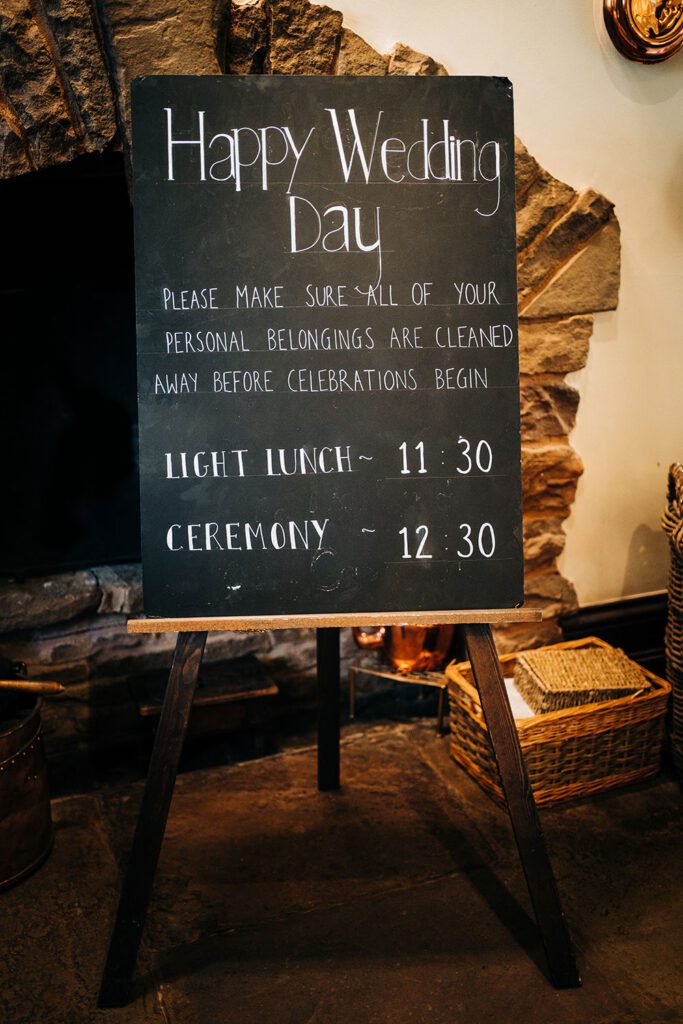 Happy Wedding
Day
PLEASE MAKE SURE ALL OF YOUR
PERSONAL BELONGINGS ARE CLEANED
AWAY BEFORE CELEBRATIONS BEGIN
LIGHT LUNCH ~ 11:30
CEREMONY ~ 12:30